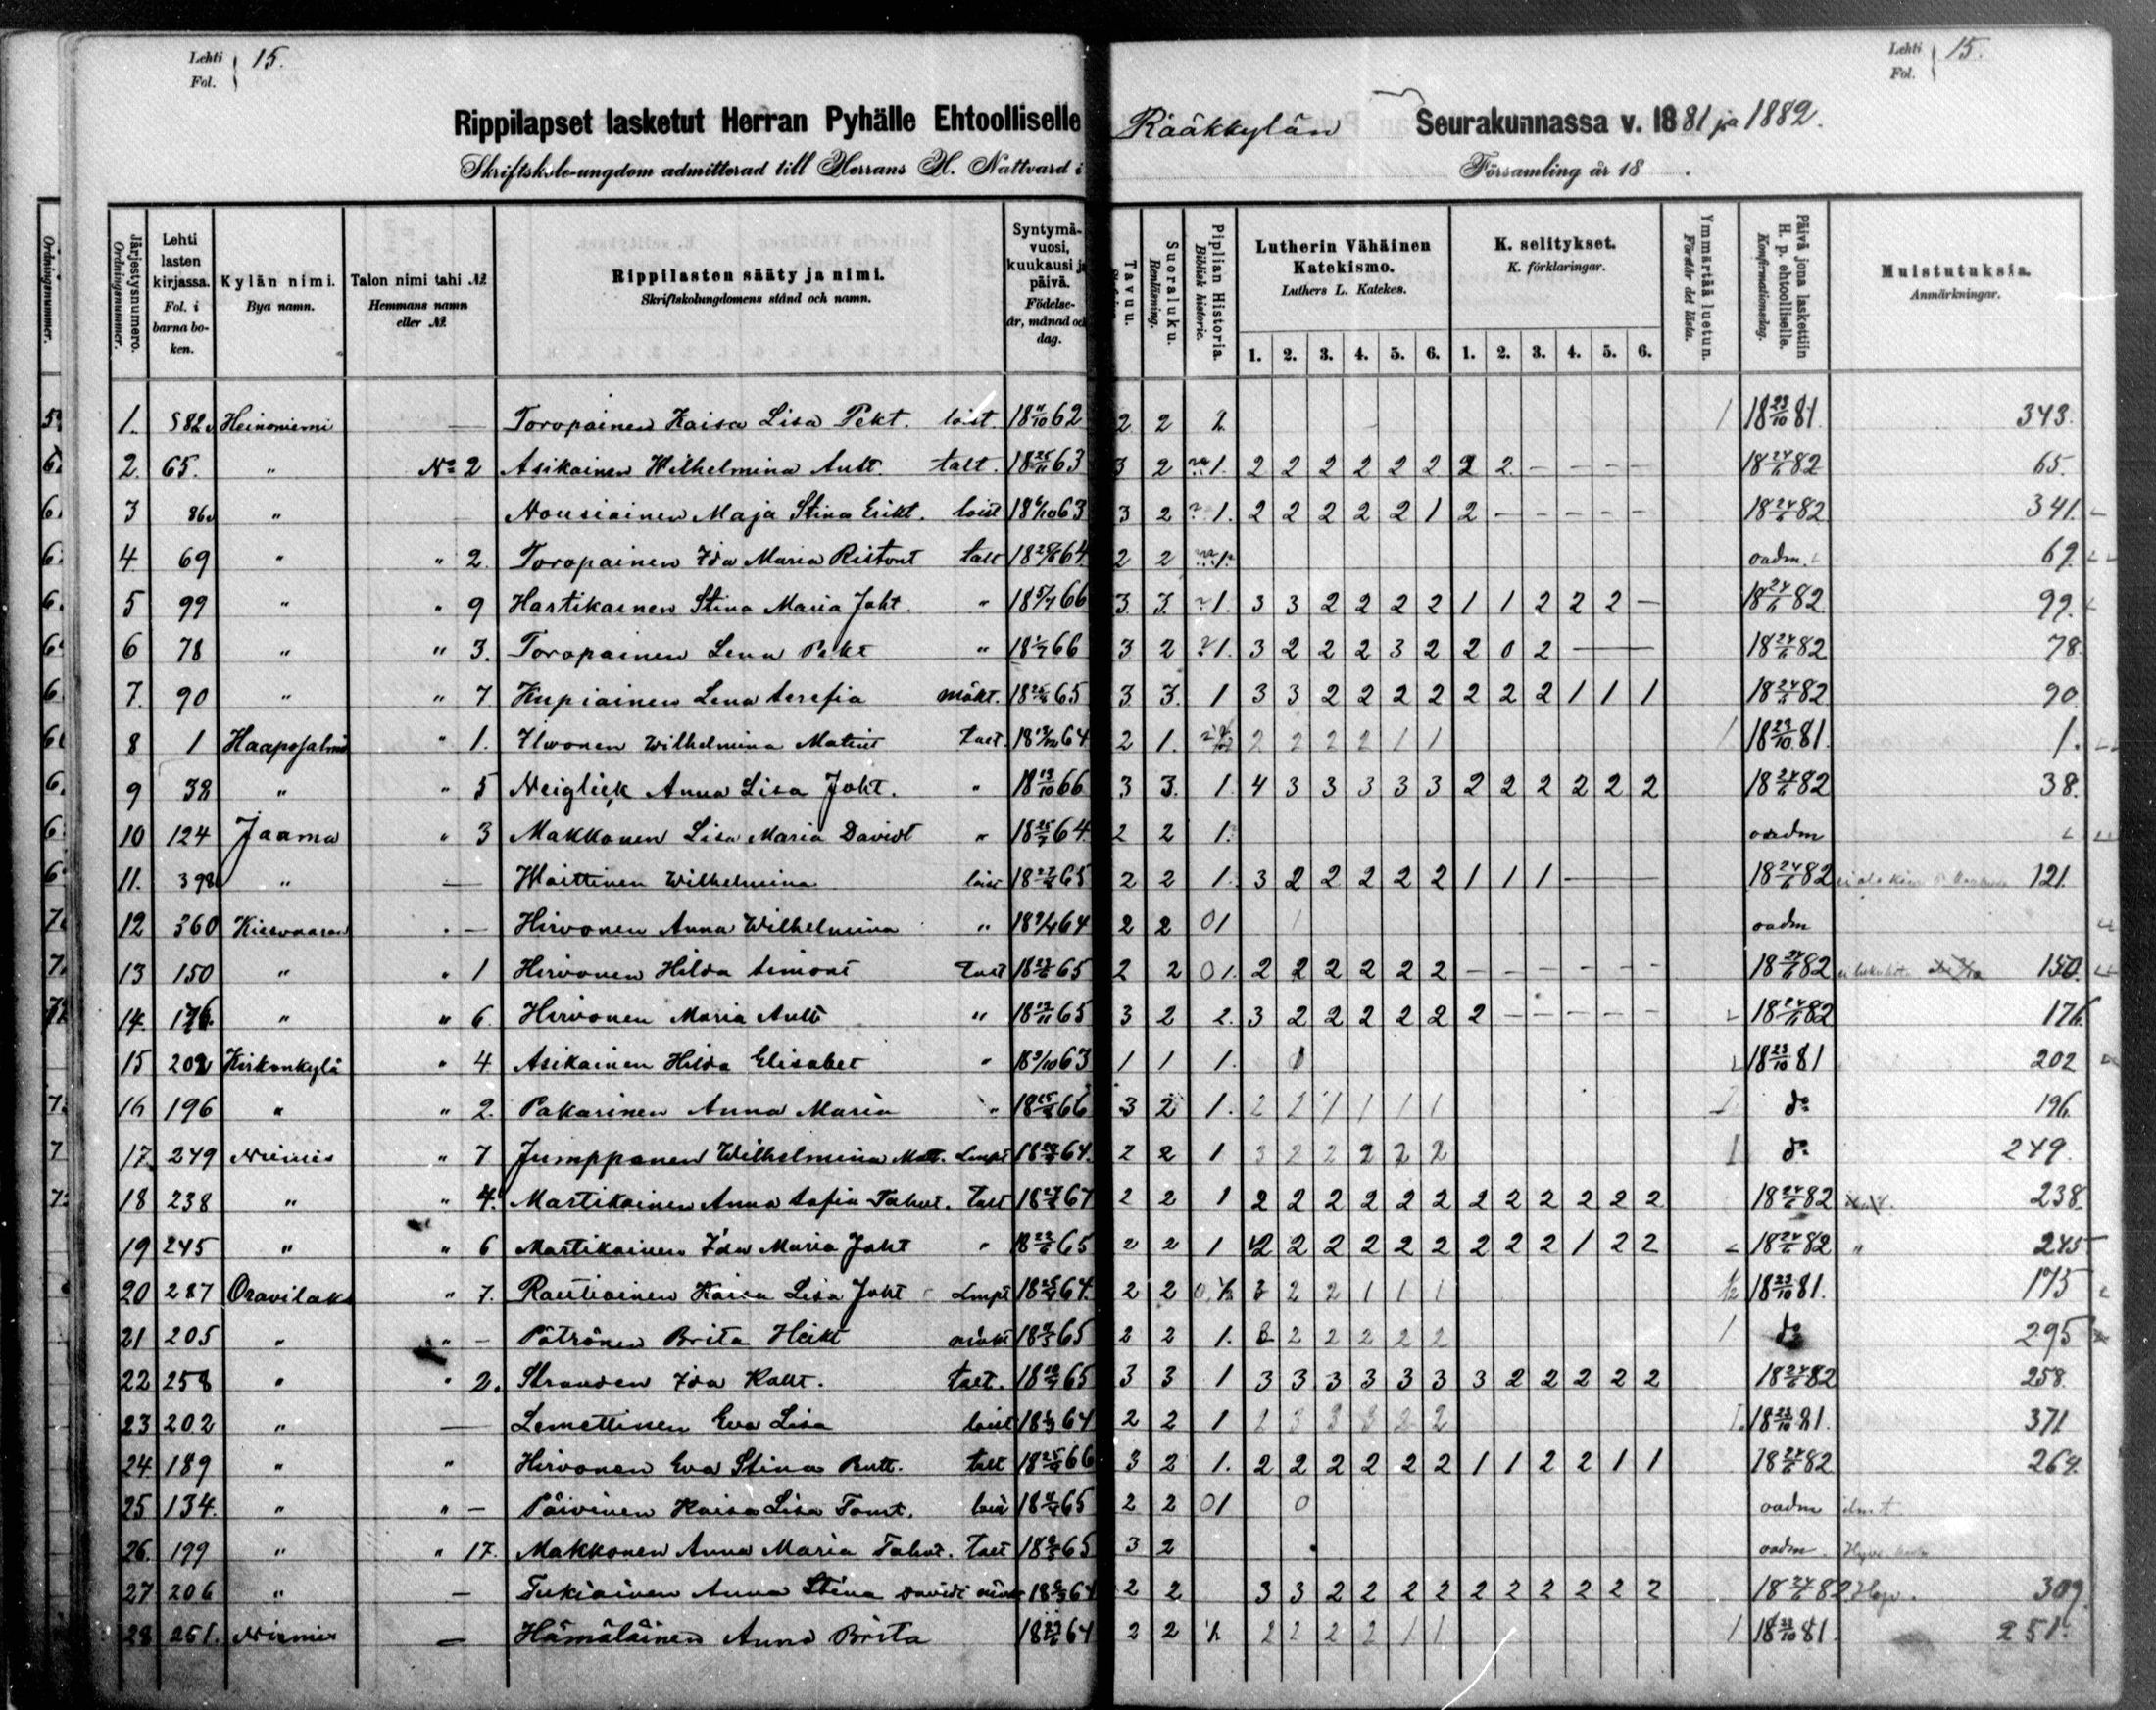 Lehti Fol. 15.
Lehti Fol. 15.
Rippilapset lasketut Herran Pyhälle Ehtoolliselle Rääkkylän Seurakunnassa v. 1881 ja 1882.
Skriftskole-ungdom admitterad till Herrans H. Nattvard i Församling år 18 .
Ordningsnummer.
Järjestysnumero. Ordningsnummer.
Lehti lasten kirjassa. Fol. i barna boken.
Kylän nimi. Bya namn.
Talon nimi tahi №. Hemmans namn eller №.
Rippilasten sääty ja nimi. Skriftskolungdomens stånd och namn.
Syntymävuosi, kuukausi ja päivä. Födelseår, månad och dag.
Tavuu.
Suoraluku. Renläsning.
Piplian Historia. Biblisk historie.
Lutherin Vähäinen Katekismo. Luthers L. Katekes.
1. 2. 3. 4. 5. 6.
K. selitykset. K. förklaringar.
1. 2. 3. 4. 5. 6.
Ymmärtää luetun. Förstår det lästa.
Päivä jona laskettiin H. p. ehtoolliselle. Konfirmationsdag.
Muistutuksia. Anmärkningar.
1. Heinoniemi — Toropainen Kaisa Lisa Pekt. loist. 18 62 2 2 2 1 18 23/10 81. 343.
2. 65. " No 2 Asikainen Wilhelmina Antt. talt. 18 63 3 2 1. 2 2 2 2 2 2 2 2 - - - - 18 24/6 82 65.
3 " Nousiainen Maja Stina Erikt. loist 18 63 3 2 1. 2 2 2 2 2 1 2 - - - - - 18 24/6 82 341.
4 69 " " 2. Toropainen Ida Maria Ristont talt 18 64 2 2 1. oadm. 69.
5 99 " " 9 Hartikainen Stina Maria Joht. " 18 66 3 3. 1. 3 3 2 2 2 2 1 1 2 2 2 — 18 24/6 82 99.
6 78 " " 3. Toropainen Lena Pekt " 18 66 3 2 1. 3 2 2 2 3 2 2 0 2 — 18 24/6 82 78.
7. 90 " " 7 Kupiainen Lena Serefia mökt. 18 65 3 3. 1 3 3 2 2 2 2 2 2 2 1 1 1 18 24/6 82 90
8 1 Haaposalmi " 1. Ilwonen Wilhelmina talt. 18 64 2 1. 2 2 2 2 1 1 1 18 23/10 81. 1.
9 38 " " 5 Neiglick Anna Lisa Joht. " 18 13/10 66 3 3. 1. 4 3 3 3 3 3 2 2 2 2 2 2 18 24/6 82 38.
10 124 Jaama " 3 Makkonen Lisa Maria Davidt " 18 64. 2 2 1. oadm
11. " — Waittinen Wilhelmina loist 18 65 2 2 1. 3 2 2 2 2 2 1 1 1 — 18 24/6 82 121.
12 360 " — Hirvonen Anna Wilhelmina " 18 64 2 2 01 oadm
13 150 " " 1 Hirvonen Hilda Simont talt 18 65 2 2 01. 2 2 2 2 2 2 - - - - - - 18 24/6 82 150.
14. 176. " " 6. Hirvonen Maria Antt " 18 65 3 2 2. 3 2 2 2 2 2 2 - - - - - 18 24/6 82 176.
15 202 Kirkonkylä " 4 Asikainen Hilda Elisabet " 18 63 1 1 1. 18 23/10 81 202
16 196 " " 2. Pakarinen Anna Maria " 18 66 3 2 1. 2 2 1 1 1 1 do 196.
17. 249 Niemis " 7 Jumppanen Wilhelmina Matt. Lmpt 18 64. 2 2 1 3 2 2 2 2 2 1 do 249.
18 238 " " 4. Martikainen Anna Sofia Tahvt. talt 18 67 2 2 1 2 2 2 2 2 2 2 2 2 2 2 2 18 24/6 82 238
19 245 " " 6 Martikainen Ida Maria Joht " 18 65 2 2 1 2 2 2 2 2 2 2 2 2 1 2 2 18 24/6 82 " 245
20 287 Oravilaks " 7. Rautiainen Kaisa Lisa Joht Lmpt 18 64. 2 2 3 2 2 1 1 1 18 23/10 81. 175
21 205 " " — Pötrönen Brita Heikt mökt 18 65 2 2 1. 2 2 2 2 2 1 do 295
22 258 " " 2. Stranden Ida talt. 18 65 3 3 1 3 3 3 3 3 3 3 2 2 2 2 2 18 24/6 82 258.
23 202 " — Lemettinen Eva Lisa loist 18 64 2 2 1 2 3 3 3 2 2 18 23/10 81. 371
24. 189 " " Hirvonen Eva Stina talt 18 66 3 2 1. 2 2 2 2 2 2 1 1 2 2 1 1 18 24/6 82 264.
25 134. " " — Päivinen Kaisa Lisa Tomt. loist 18 65 2 2 01 0 oadm
26. 199 " " 17. Makkonen Anna Maria Tahvt. talt 18 65 3 2 oadm.
27 206 " — Tukiainen Anna Stina Davidt 18 64 2 2 3 3 2 2 2 2 2 2 2 2 2 2 18 24/6 82 309.
28 261. Niemis — Hämäläinen Anna Brita 18 64 2 2 2 2 2 2 1 1 1 18 23/10 81. 251.